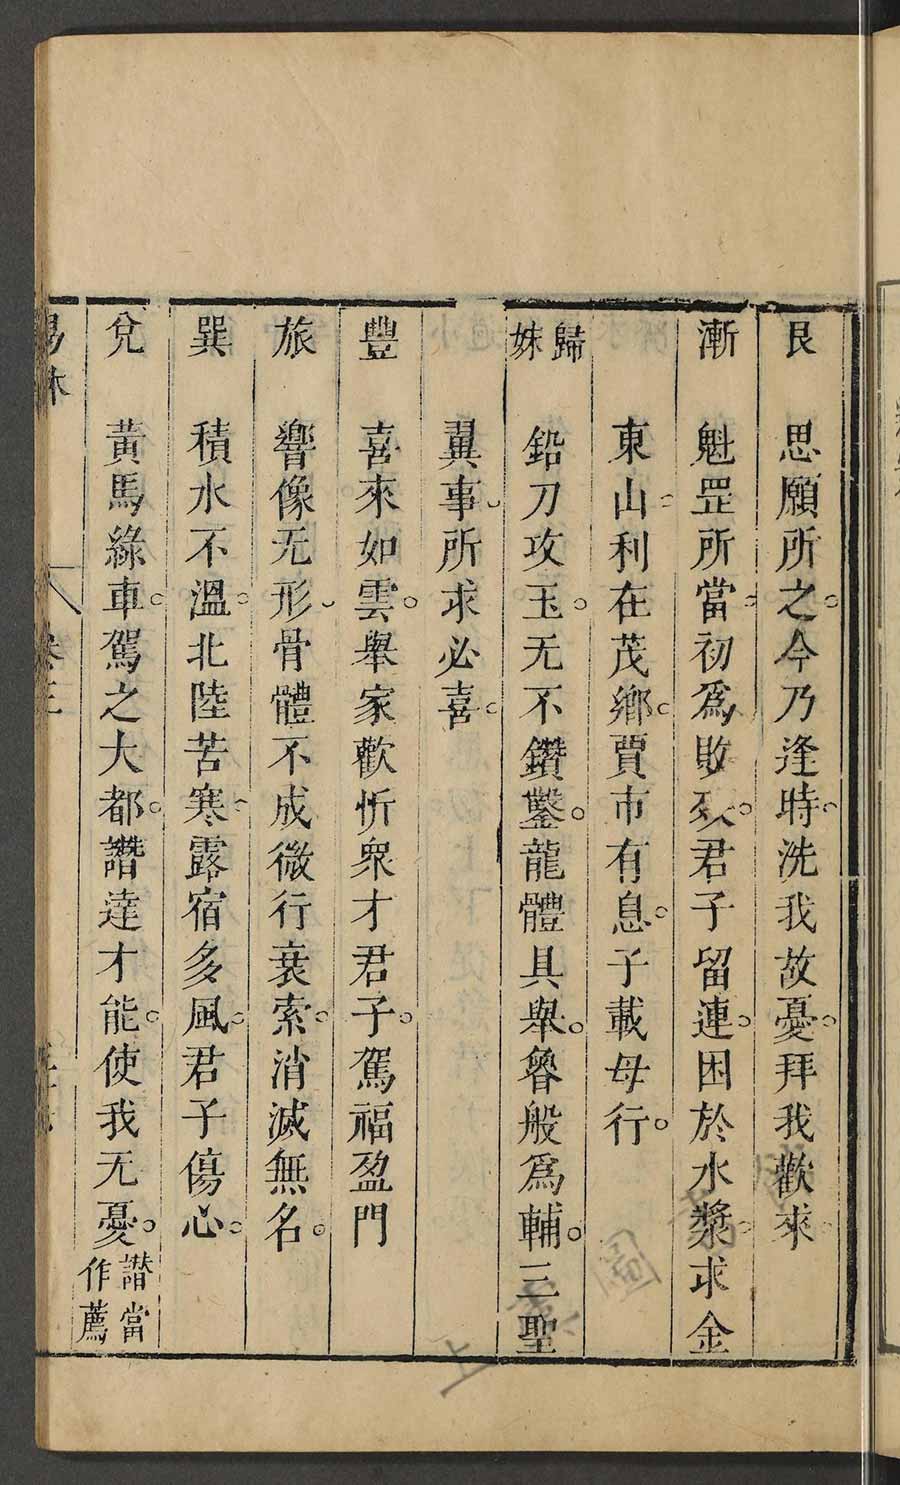 艮　思願所之。今乃逢時。洗我故憂。拜我歡來
漸　魁罡所當。初爲敗𣧑。君子留連。困於水漿。求金
東山。利在茂鄉。賈市有息。子載母行。
歸妹　鉛刀攻玉。无不鑽鑿。龍體具舉。魯般爲輔。三聖
翼事。所求必喜。
豐　喜來如雲。舉家歡忻衆才君子。駕福盈門
旅　響像无形。骨體不成微行衰索。消滅無名。
巽　積水不溫。北陸苦寒。露宿多風。君子傷心。
兌　黃馬綠車。駕之大都。譖達才能。使我无憂。譖當作薦
易林　卷三